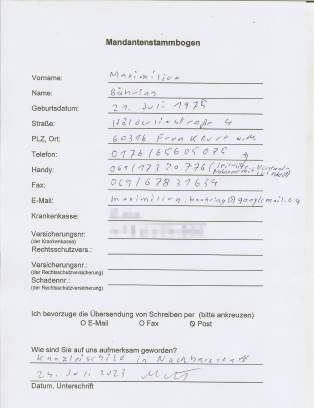 Mandantenstammbogen
Vorname: Maximilian
Name: Bähring
Geburtsdatum: 21. Juli 1975
Straße: Hölderlinstraße 4
PLZ, Ort: 60316 Frankfurt
Telefon: 0176/65605075
Handy: 069/17320776
Fax: 069/67831634
E-Mail:
Krankenkasse:
Versicherungsnr:
(der Krankenkasse)
Rechtsschutzvers.:
Versicherungsnr.:
(der Rechtsschutzversicherung)
Schadennr.:
(der Rechtsschutzversicherung)
Ich bevorzuge die Übersendung von Schreiben per (bitte ankreuzen)
O E-Mail O Fax O Post
Wie sind Sie auf uns aufmerksam geworden?
Kanzleischild in
24. Juli 2023
Datum, Unterschrift